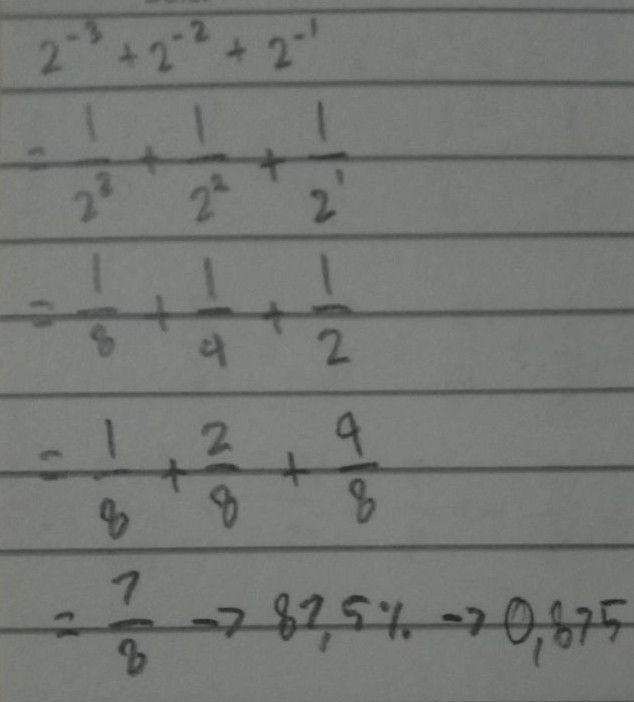 2⁻³ + 2⁻² + 2⁻¹
= 1/2³ + 1/2² + 1/2¹
= 1/8 + 1/4 + 1/2
= 1/8 + 2/8 + 4/8
= 7/8 → 87,5% → 0,875